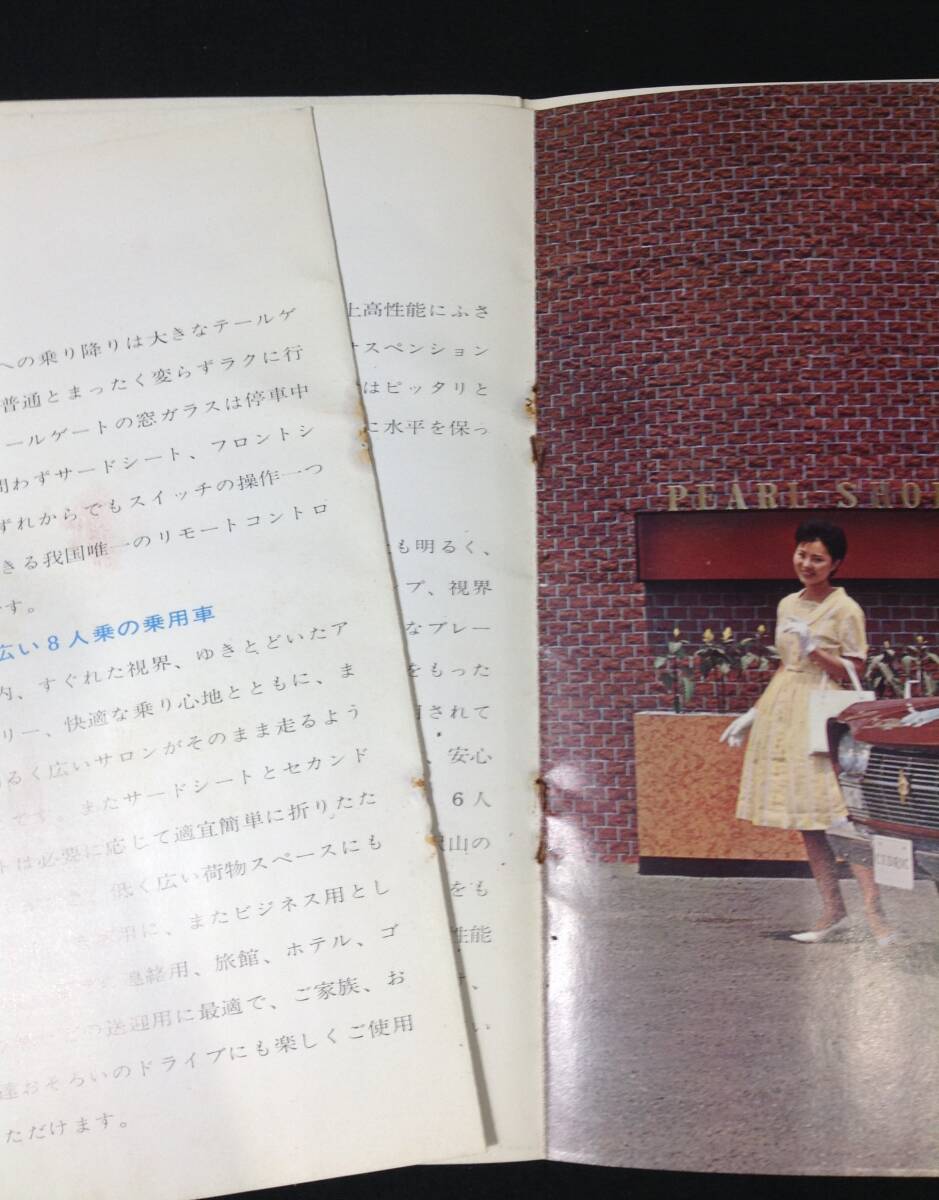 への乗り降りは大きなテールゲ
普通とまったく変らずラクに行
ールゲートの窓ガラスは停車中
問わずサードシート、フロントシ
ずれからでもスイッチの操作一つ
きる我国唯一のリモートコントロ
です。
広い8人乗の乗用車
内、すぐれた視界、ゆきとどいたア
リー、快適な乗り心地とともに、ま
るく広いサロンがそのまま走るよう
です。またサードシートとセカンド
トは必要に応じて適宜簡単に折りたた
低く広い荷物スペースにも
用に、またビジネス用とし
連絡用、旅館、ホテル、ゴ
の送迎用に最適で、ご家族、お
達おそろいのドライブにも楽しくご使用
ただけます。
上高性能にふさ
サスペンション
はピッタリと
に水平を保っ
も明るく、
プ、視界
なブレー
をもった
用されて
、安心
6人
沢山の
をも
性能
、
い
PEARL SHO
CEDRIC